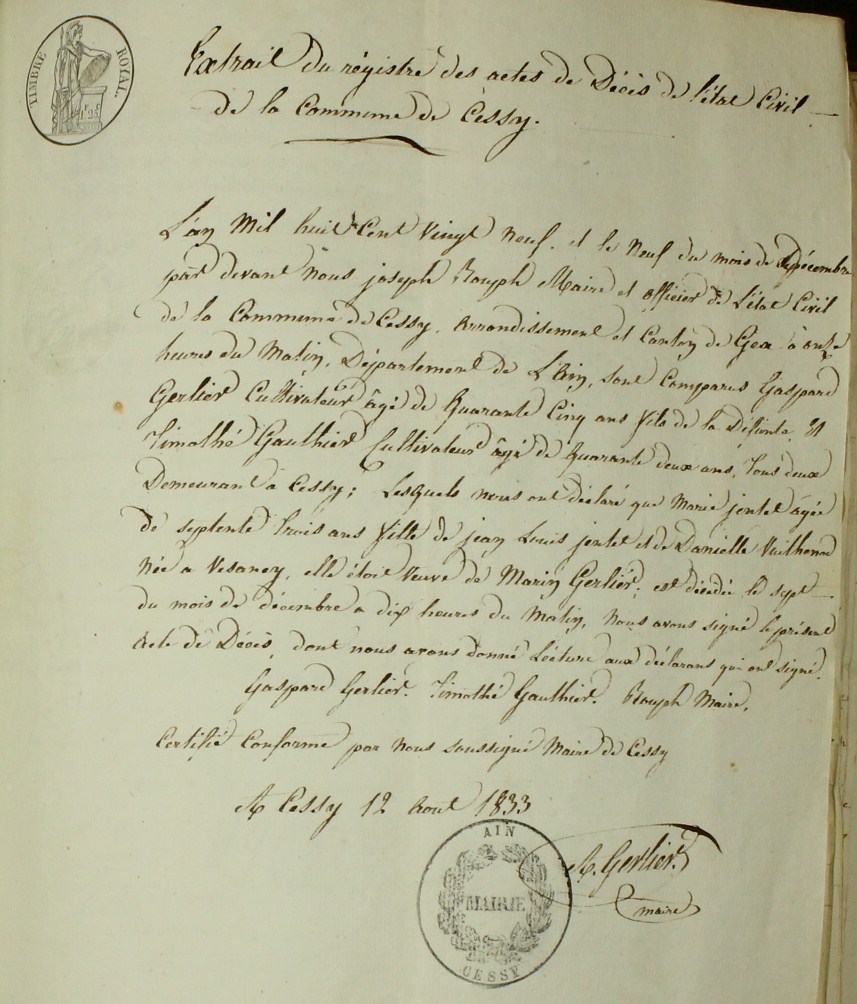 TIMBRE ROYAL.
1f 25c
Extrait du régistre des actes de Décès de l'état Civil
de la Commune de Cessy.
L'an Mil huit Cent Vingt Neuf. et le Neuf du mois de Décembre
par devant Nous joseph Rouph Maire et officier de L'état Civil
de la Commune de Cessy, Arrondissement et Canton de Gex à onze
heures du Matin, Département de L'Ain, sont Comparus Gaspard
Gerlier Cultivateur âgé de Quarante Cinq ans fils de la Défunte, Et
Timothé Gauthier Cultivateur âgé de Quarante deux ans, Tous deux
Demeurant à Cessy; Lesquels nous ont déclaré que Marie jontet âgée
de septente trois ans fille de jean Louis jontet et de Danielle
Née a Vesancy, elle étoit Veuve de Marin Gerlier; est décédée le sept
du mois de décembre a dix heures du Matin, Nous avons signé le présent
Acte de Décès, dont nous avons donné Lécture aux déclarans qui ont signé.
Gaspard Gerlier. Timothé Gauthier. Rouph Maire.
Certifié Conforme par Nous soussigné Maire de Cessy
A Cessy 12 Aout 1833
A. Gerlier
maire
AIN
MAIRIE
CESSY